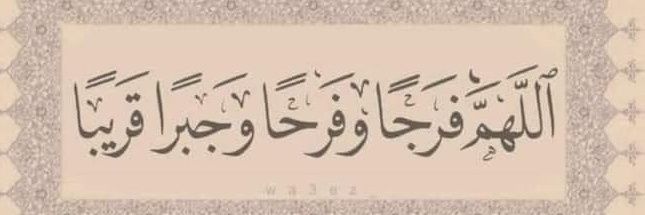 ٱللَّهُمَّ فَرَجًا وَفَرَحًا وَجَبْرًا قَرِيبًا
wa3ez_